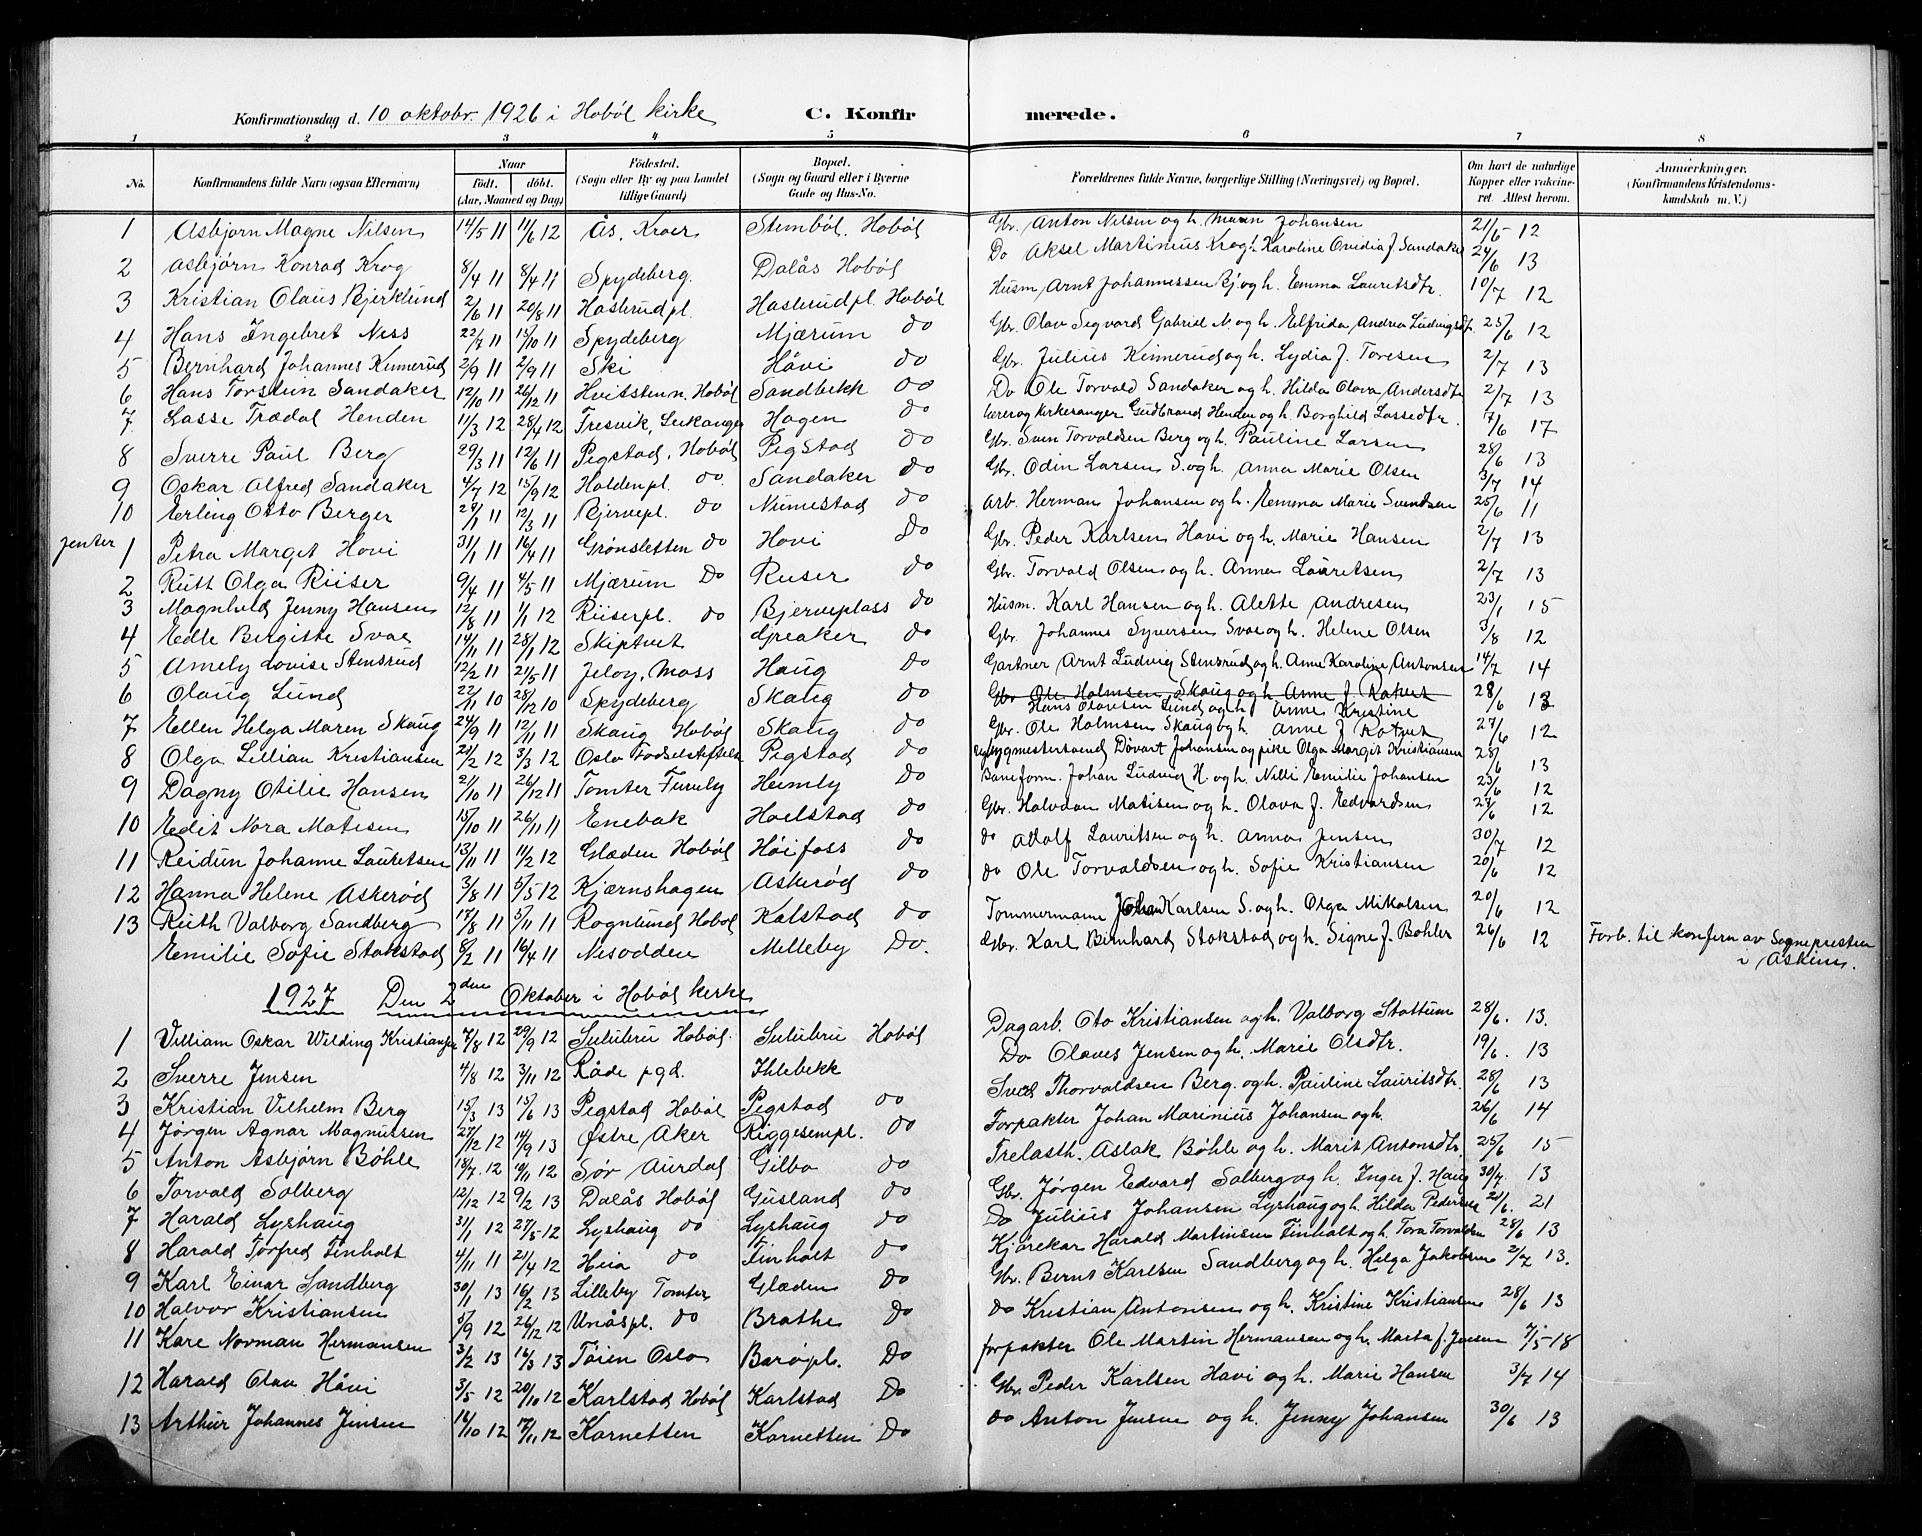 Konfirmationsdag d. 10 oktobr. 1926 i Hobøl kirke C. Konfirmerede.
1 2 3 4 5 6 7 8
No. Konfirmandens fulde Navn (ogsaa Efternavn) Naar født. døbt. (Aar, Maaned og Dag) Fødested. (Sogn eller By og paa Landet tillige Gaard) Bopæl. (Sogn og Gaard eller i Byerne Gade og Hus-No. Forældrenes fulde Navne, borgerlige Stilling (Næringsvei) og Bopæl. Om havt de naturlige Kopper eller vakcineret. Attest herom. Anmærkninger. (Konfirmandens Kristendomskundskab m. V.)
1 Asbjørn Magne Nilsen 14/5 11 11/6 12 Ås, Kroer Stenbøl. Hobøl Gbr. Anton Nilsen og h. Johansen 21/5 - 12
2 Asbjørn Konrad Krog 8/4 11 8/4 11 Spydeberg. Dalås Hobøl Do Aksel Martinius Krog h. Karoline Ovidia J. Sandaker 24/6 13
3 Kristian Olaus Bjerklund 2/6 11 20/8 11 Haslerudpl. Haslerudpl. Hobøl Husm. Arnt Johannessen Bj. og h. Emma Lauritsdtr. 10/7 12
4 Hans Ingebret Ness 22/7 11 15/10 11 Spydeberg Mjærum do Gbr. Olav Segvard Gabriel N. og h. Elfrida Andrea Ludvigsdtr. 25/6 12
5 Bernhard Johannes Kinnerud 2/9 11 2/9 11 Ski Håvi do Gbr. Julius Kinnerud og h. Lydia J. Toresen 2/7 13
6 Hans Torstein Sandaker 12/10 11 26/12 11 Hvitsten, Hobøl Sandbekk do Do Ole Torvald Sandaker og h. Hilda Olava Andersdtr 2/7 13
7 Lasse Trædal Henden 11/3 12 28/4 12 Fresvik, Leikanger Hagen do lærer og kirkesanger Gudbrand Henden og h. Borghild Lassedtr. 7/6 17
8 Sverre Paul Berg 29/3 11 12/6 11 Pegstad, Hobøl Pegstad do Gbr. Sven Torvaldsen Berg og h. Pauline Larsen 28/6 13
9 Oskar Alfred Sandaker 4/7 12 15/9 12 Holdenpl. do. Sandaker do Gbr. Odin Larsen S. og h. Anna Marie Olsen 3/7 14
10 Erling Otto Berger 29/1 11 12/3 11 Bjervepl. do Numestad do Arb. Herman Johansen og h. Emma Marie Svendsen 25/6 11
jenter 1 Petra Margit Hovi 31/1 11 16/4 11 Grønsletten do Hovi do Gbr. Peder Karlsen Havi og h. Marie Hansen 2/7 13
2 Rutt Olga Riiser 9/4 11 4/5 11 Mjærum Do Ruser do Gbr. Torvald Olsen og h. Anna Lauritsen 2/7 13
3 Magnhild Jenny Hansen 12/8 11 1/1 12 Riiserpl. do Bjerveplass do Husm. Karl Hansen og h. Alette Andresen 23/1 15
4 Edle Bergitte Svae 14/11 11 28/1 12 Skiptvet Greaker do Gbr. Johannes Syversen Svae og h. Helene Olsen 3/8 12
5 Amely Lovise Stensrud 12/2 11 21/5 11 Jeløy, Moss Haug do Gartner Arnt Ludvig Stensrud og h. Anne Karoline Antonsen 14/7 14
6 Olaug Lund 22/11 10 28/12 10 Spydeberg Skaug do Gbr. Ole Holmsen Skaug og h. Anne J. Rakut 28/6 13
Hans Olavsen Lund og h. Anne Kristine
7 Ellen Helga Maren Skaug 24/9 11 12/11 11 Skaug Hobøl Skaug do Gbr. Ole Holmsen Skaug og h. Anne J. 27/6 12
8 Olga Lillian Kristiansen 21/2 12 3/3 12 Oslo Pegstad do Johansen og pike Olga Margit Kristiansen 28/6 13
9 Dagny Otilie Hansen 21/10 11 26/12 11 Tomter Furuly Heimly Do Baneform. Johan Ludvig H. og h. Nilli Emilie Johansen 23/6 12
10 Edit Nora Matisen 15/10 11 26/11 11 Enebak Hoelstad do Gbr. Halvdan Matisen og h. Olava J. Edvardsen 27/6 12
11 Reidun Johanne Lauritsen 13/11 11 11/2 12 Glæden Hobøl Høifoss do do Adolf Lauritsen og h. Anna Jensen 30/7 12
12 Hanna Helene Askerød 3/8 11 5/5 12 Kjærnshagen Askerød do do Ole Torvaldsen og h. Sofie Kristiansen 20/6 12
13 Ruth Valborg Sandberg 17/8 11 5/11 11 Rognlund Hobøl Kalstad do Tommermann Johan Karlsen S. og h. Olga Mikalsen 20/6 12
Emilie Sofie Stokstad 8/2 11 16/4 11 Nesodden Melleby Do. Gbr. Karl Bernhard Stokstad og h. Signe J. Bøhler 26/6 12 Forb. til konferm av Sognepresten
i Askim.
1927 Den 2den Oktober i Hobøl kirke
1 Villiam Oskar Wilding Kristiansen 7/8 12 29/9 12 Sulubru Hobøl. Sulubru Hobøl Dagarb. Oto Kristiansen og h. Valborg Stottum 28/6. 13.
2 Sverre Jensen 4/8 12 3/11 12 Råde pgd. Ihlebekk Do Olaves Jensen og h. Marie Olsdtr. 19/6. 13
3 Kristian Vilhelm Berg 15/3 13 15/6 13 Pegstad Hobøl Pegstad do Sved Thorvaldsen Berg. og h. Pauline Lauritsdtr. 28/6 13
4 Jørgen Agnar Magnussen 27/12 12 14/9 13 Østre Aker Riggesempl. do Forpakter Johan Marinius Johansen og h. 26/6 14
5 Anton Asbjørn Bøhle 18/7. 12 10/11 12 Sør Aurdal Gilbo do Trelasth. Aslak Bøhle og h. Marit Antonsdtr. 25/6 15
6 Torvald Solberg 12/12 12 9/2 13 Dalås Hobøl Gusland do Gbr. Jørgen Edvard Solberg og h. Inger J. Haug 30/7 13
7 Harald Lyshaug 31/1 12 27/5 12 Lyshaug do Lyshaug do Do Julius Johansen Lyshaug og h. Hilda Pedersen 21/6. 21
8 Harald Torfred Finholt 4/11 11 21/4 12 Heia do Finholt do Kjørekar Harald Martinsen Finholt og h. Tora Torvaldsen 28/6 13
9 Karl Einar Sandberg 30/1 13 16/2 13 Lilleby Tomter Glæden Do Gbr. Bernt Karlsen Sandberg og h. Helga Jakobsen 2/7 13.
10 Halvor Kristiansen 5/9 12 26/12 12 Unåspl. do Brathe Do do Kristian Antonsen og h. Kristine Kristiansen 28/6 13
11 Kare Norman Hermansen 3/2 13 16/3 13 Tøien Oslo Barøpl. Do forpakter Ole Martin Hermansen og h. Marta J. Jensen 7/5 - 18
12 Harald Olav Håvi 3/5 12 20/10 12 Karlstad Hobøl Karlstad Do Gbr. Peder Karlsen Havi og h. Marie Hansen 3/7 14
13 Arthur Johannes Jensen 16/10 12 17/11 12 Kornetten Kornetten Do do Anton Jensen og h. Jenny Johansen 30/6 13